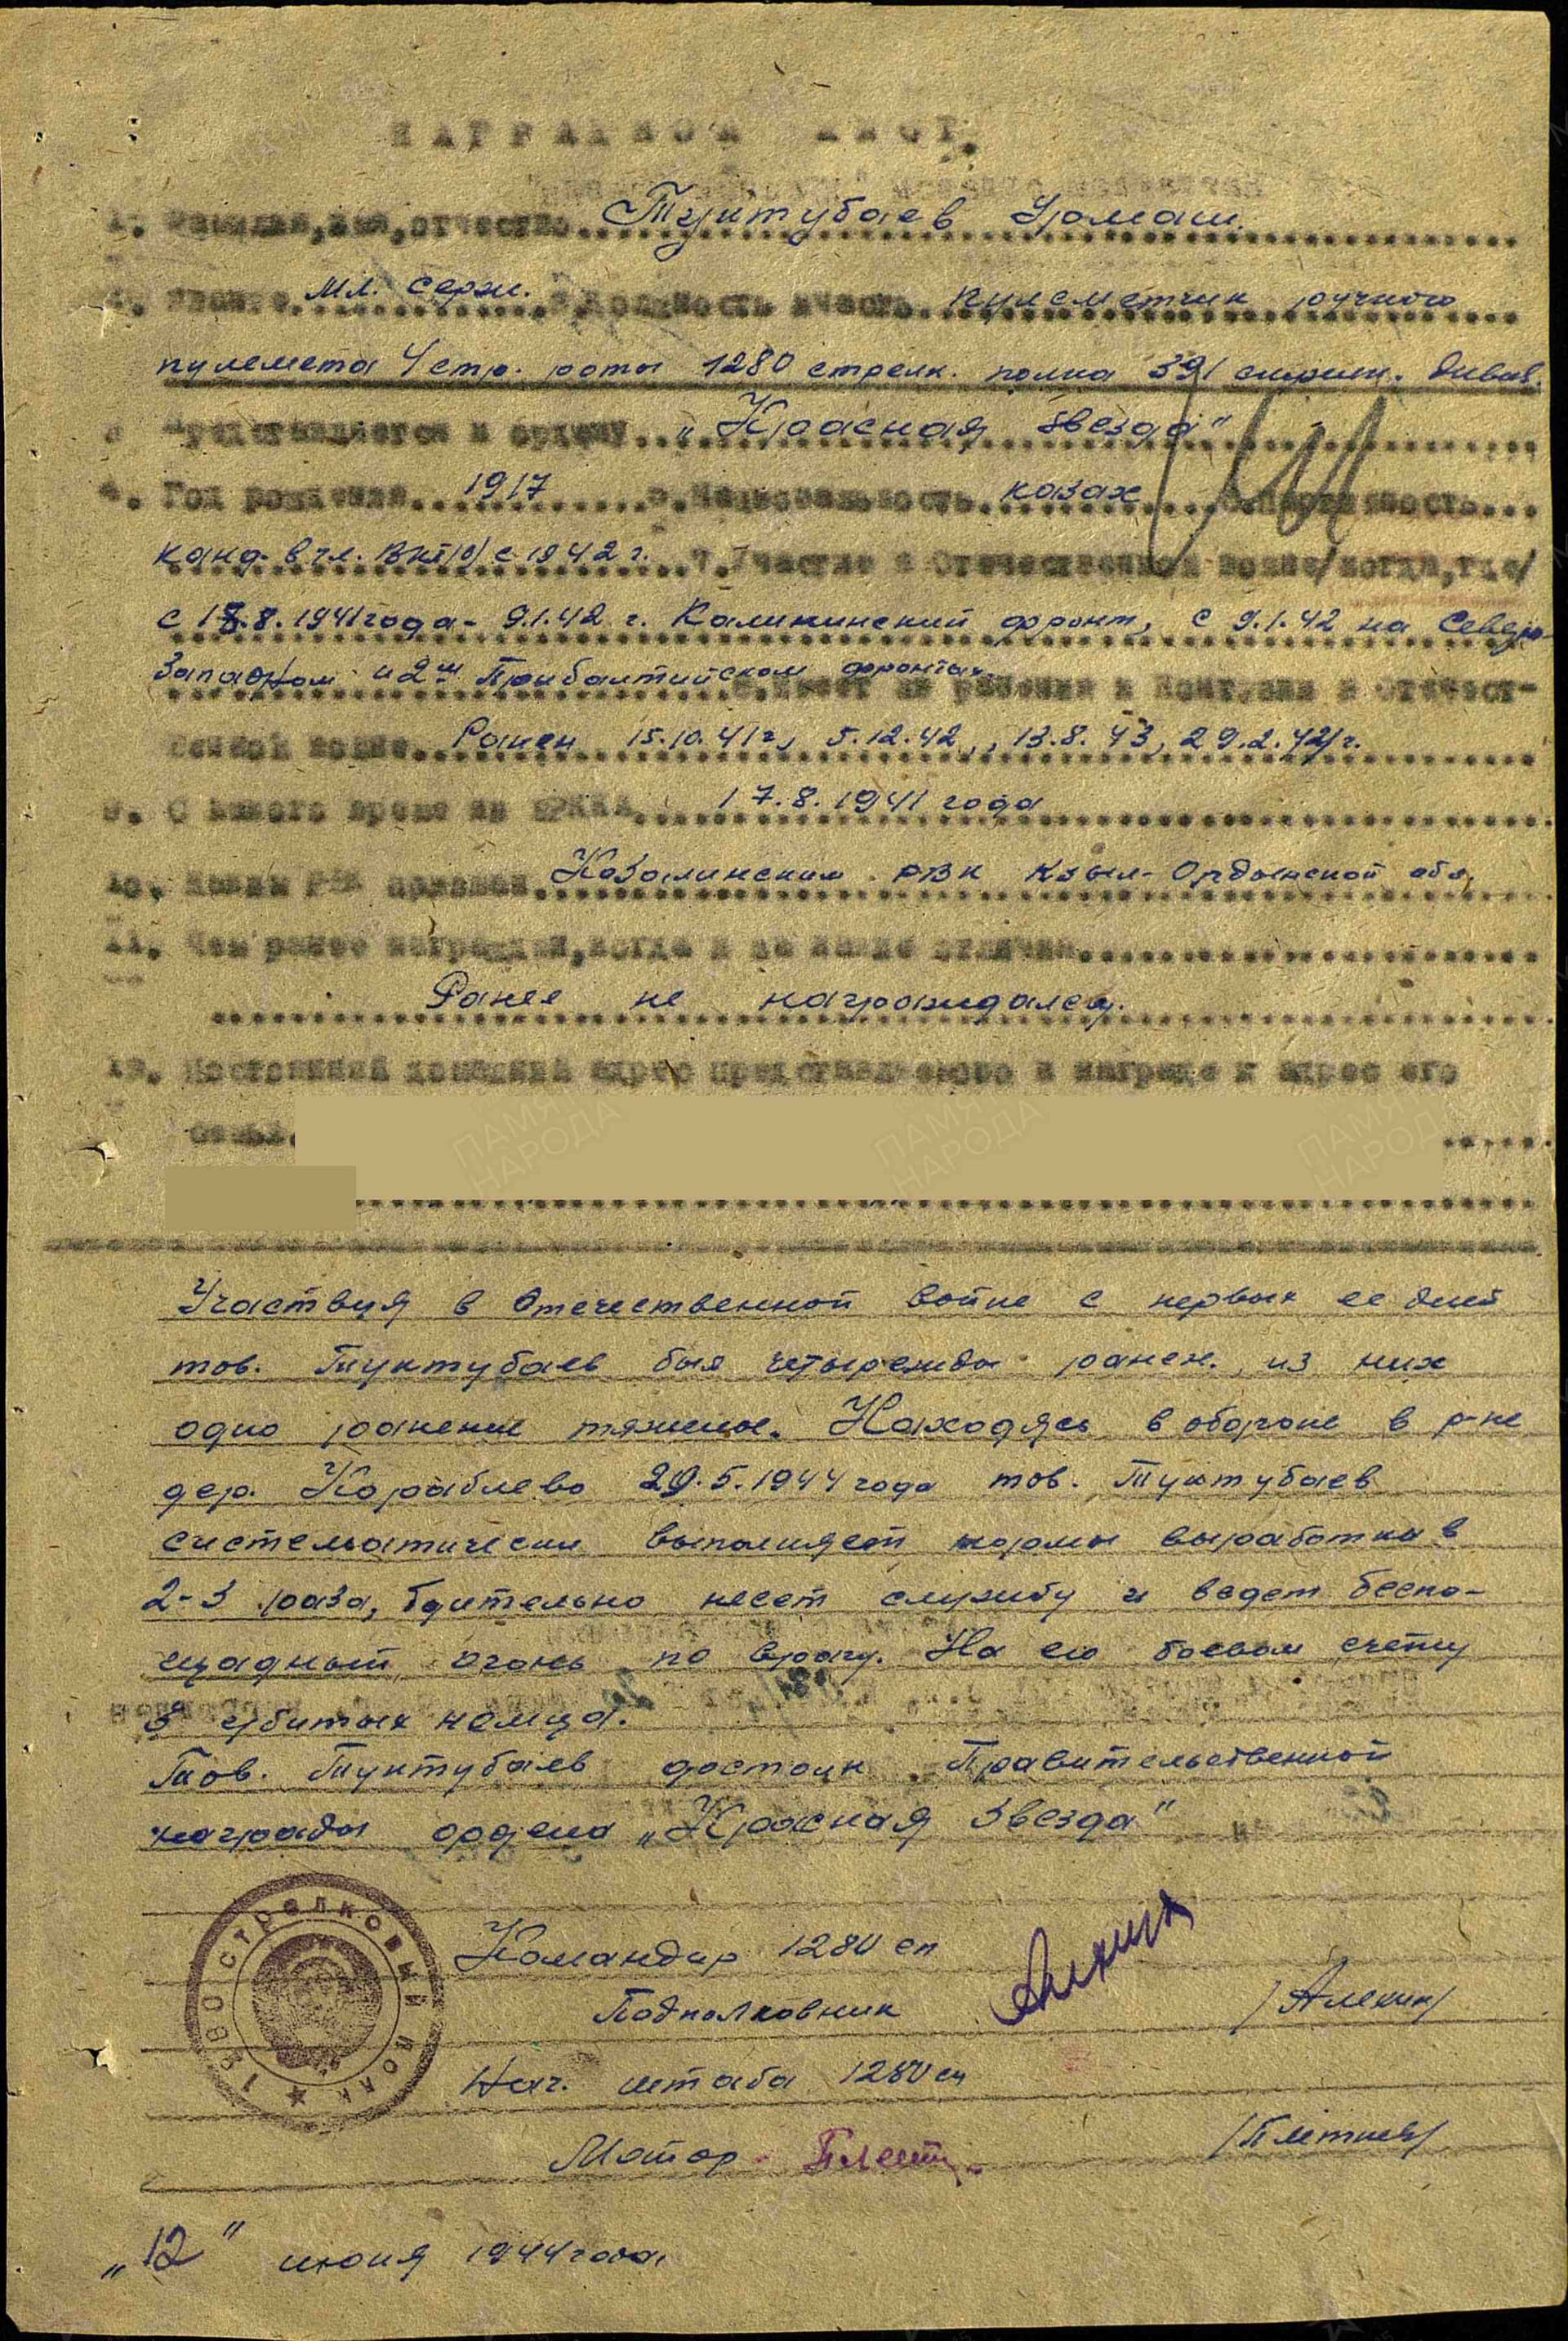 НАГРАДНОЙ ЛИСТ.
1. Фамилия, имя, отчество Туктубаев Урмаш.
2. Звание мл. серж. 3. Должность и часть пулеметчик ручного
пулемета 4 стр. роты 1280 стрелк. полка 391 стрелк. дивиз.
Представляется к ордену „Красная Звезда"
4. Год рождения 1917 5. Национальность казах 6. Партийность
канд. в чл. ВКП/б/ с 1942 г. 7. Участие в Отечественной войне/когда, где/
с 18.8.1941 года - 9.1.42 г. Калининский фронт, с 9.1.42 на Северо-
Западном и 2ом Прибалтийском фронтах. 8. Имеет ли ранения и контузии в Отечест-
венной войне Ранен 15.10.41 г., 5.12.42, 13.8.43, 29.2.42 г.
9. С какого времени в РККА 17.8.1941 года
10. Каким РВК призван Казалинским РВК Кзыл-Ординской обл.
11. Чем ранее награжден, когда и за какие отличия
Ранее не награждался.
12. Постоянный домашний адрес представляемого к награде и адрес его
семьи.
Участвуя в Отечественной войне с первых ее дней
тов. Туктубаев был четырежды ранен, из них
одно ранение тяжелое. Находясь в обороне в р-не
дер. Кораблево 29.5.1944 года тов. Туктубаев
систематически выполняет нормы выработки в
2-3 раза, бдительно несет службу и ведет беспо-
щадный огонь по врагу. На его боевом счету
3 убитых немца.
Тов. Туктубаев достоин Правительственной
награды ордена „Красная Звезда"
1280 стрелковый полк
Командир 1280 сп
Подполковник Алекин /Алекин/
Нач. штаба 1280 сп
Майор Плетн /Плетнев/
„12" июня 1944 года.
ПАМЯТЬ НАРОДА
ПАМЯТЬ НАРОДА
ПАМЯТЬ НАРОДА